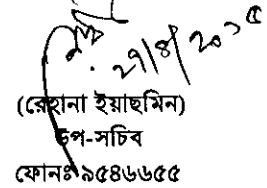 ২৭/৪/২০১৫
(রেহানা ইয়াছমিন)
উপ-সচিব
ফোনঃ ৯৫৪৬৬৫৫